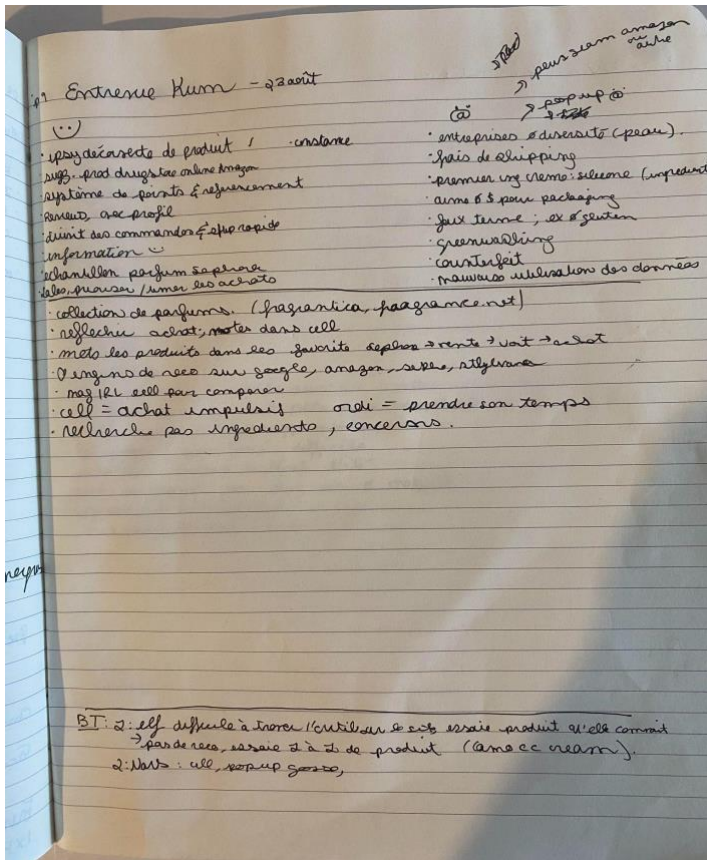 p1 Entrevue Kum - 23 août
peur scam amazon
ou autre
→ popup
· ipsy découverte de produit / · constance
sugg. prod drugstore online Amazon
système de points & referencement
Reviews, avec profil
suivit des commandes & ship rapide
information
echantillon parfum sephora
Sales, prioriser / limer les achats
· entreprises ø diversité (peau).
· frais de shipping
· premier ing creme: silicone (ingredient
· aime ø $ pour packaging
· faux terme ; ex ø gluten
· greenwashing
· counterfeit
· mauvaise utilisation des données
· collection de parfums. (fragrantica, fragrance.net)
· reflechie achat; notes dans cell
· mets les produits dans les favorite sephora → vente → voit → achat
· engins de reco sur google, amazon,
· mag IRL cell pour comparer
· cell = achat impulsif ordi = prendre son temps
· recherche pas ingredients, concerns.
BT: 2: elf difficile à trouver l'outil sur le site essaie produit qu'elle connait
→ pas de reco, essaie 2 à 2 de produit (aime cc cream).
2: Nars : cell, popup